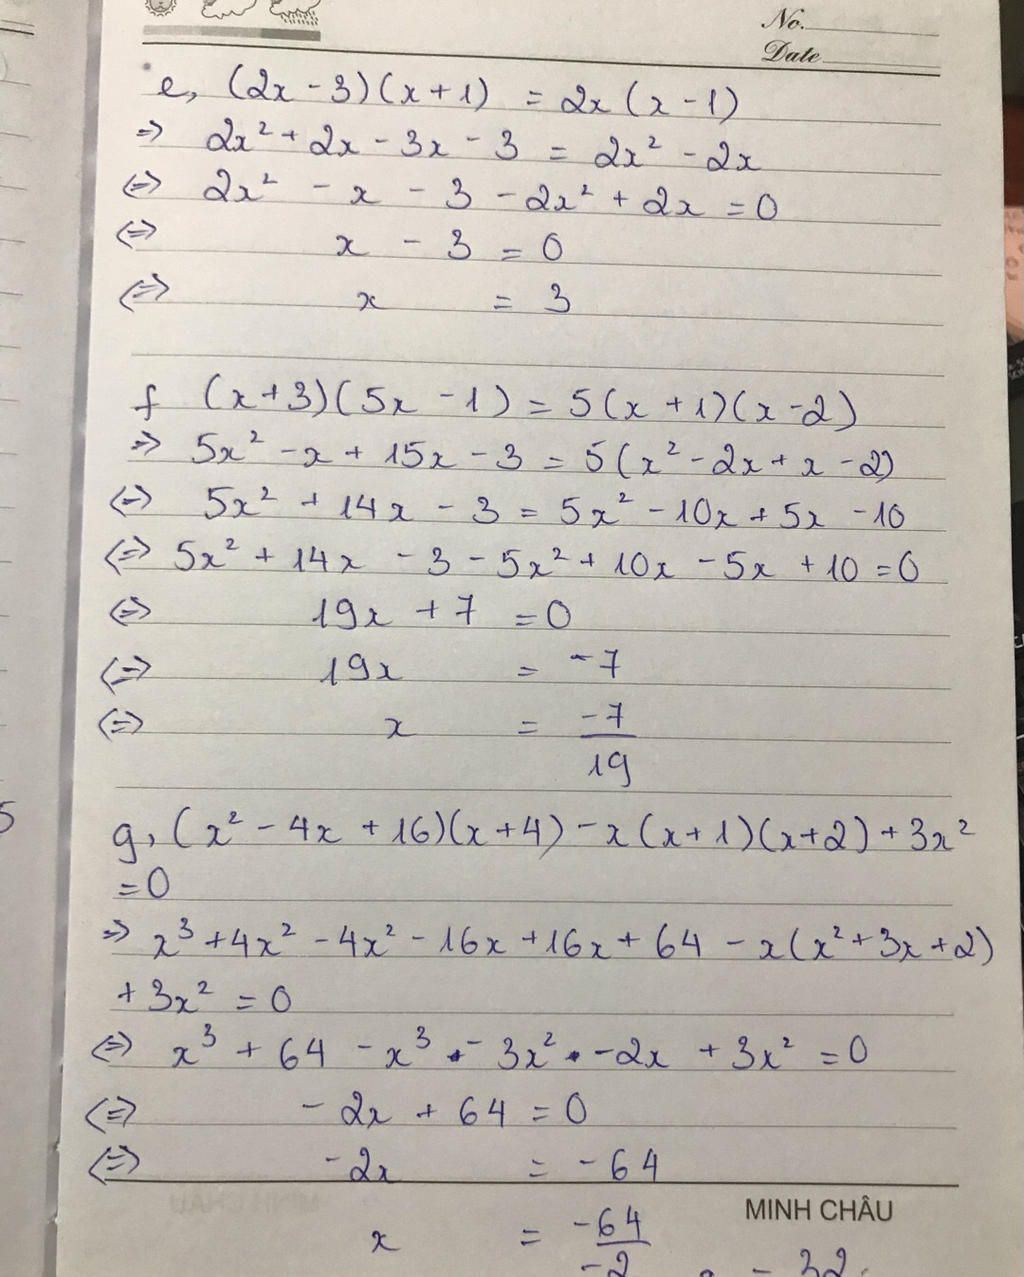 No.
Date
e, (2x - 3)(x + 1) = 2x(x - 1)
=> 2x² + 2x - 3x - 3 = 2x² - 2x
<=> 2x² - x - 3 - 2x² + 2x = 0
<=> x - 3 = 0
<=> x = 3
f (x + 3)(5x - 1) = 5(x + 1)(x - 2)
=> 5x² - x + 15x - 3 = 5(x² - 2x + x - 2)
<=> 5x² + 14x - 3 = 5x² - 10x + 5x - 10
<=> 5x² + 14x - 3 - 5x² + 10x - 5x + 10 = 0
<=> 19x + 7 = 0
<=> 19x = -7
<=> x = -7/19
g, (x² - 4x + 16)(x + 4) - x(x + 1)(x + 2) + 3x²
= 0
=> x³ + 4x² - 4x² - 16x + 16x + 64 - x(x² + 3x + 2)
+ 3x² = 0
<=> x³ + 64 - x³ - 3x² - 2x + 3x² = 0
<=> - 2x + 64 = 0
<=> - 2x = - 64
MINH CHÂU
x = -64/-2 32
5